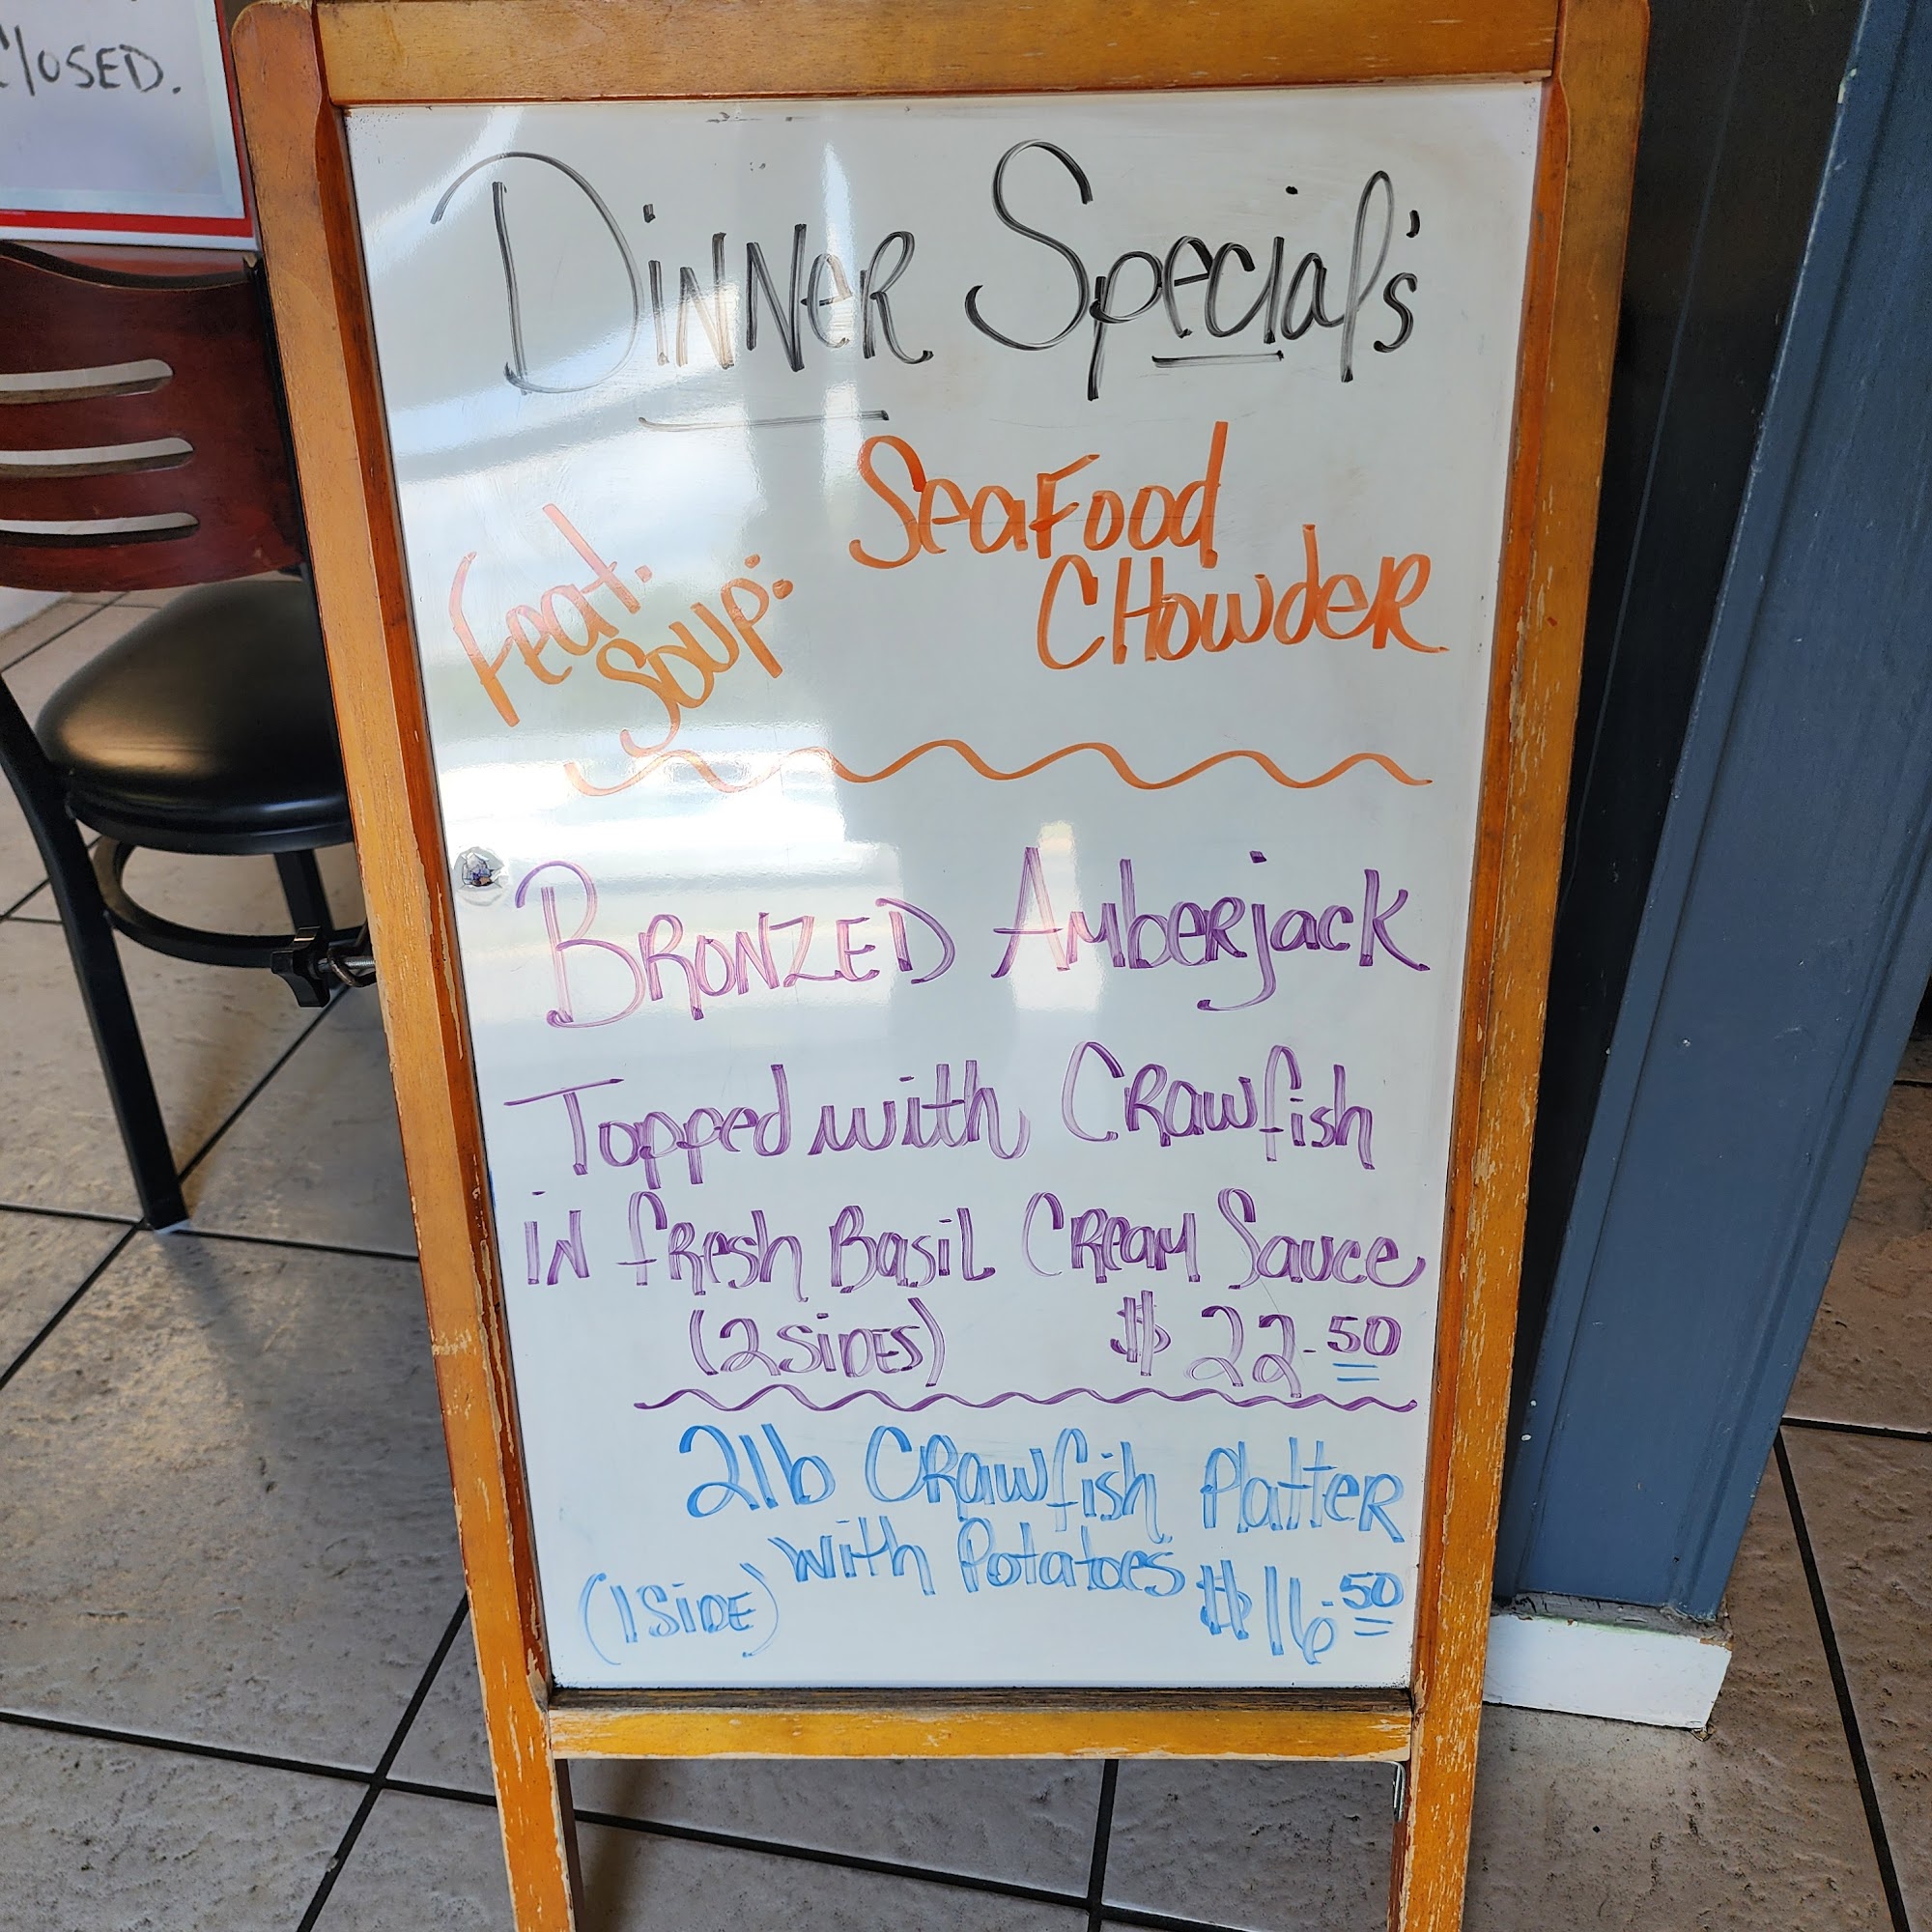 Closed.
Dinner Special's
Feat. Soup: Seafood Chowder
Bronzed Amberjack
Topped with Crawfish
in fresh Basil Cream Sauce
(2 sides) $22.50
2lb Crawfish Platter
with Potatoes
(1 side) $16.50